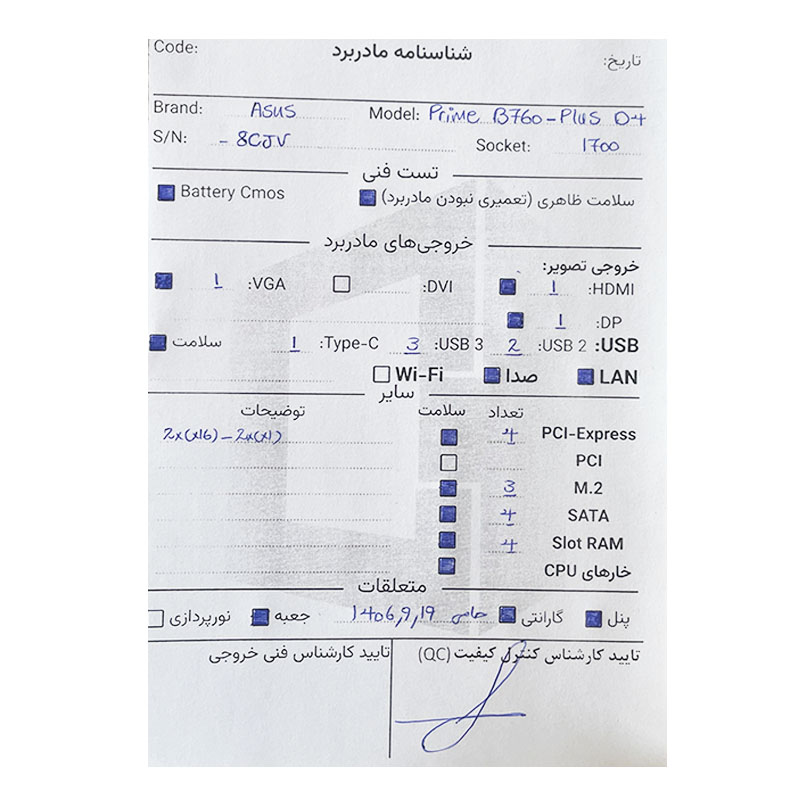 Code: شناسنامه مادربرد تاریخ:
Brand: ASUS Model: Prime B760-Plus D4
S/N: - 8CJV Socket: 1700
تست فنی
سلامت ظاهری (تعمیری نبودن مادربرد) Battery Cmos
خروجی‌های مادربرد
خروجی تصویر:
HDMI: 1 DVI: VGA: 1
DP: 1
USB: USB 2: 2 USB 3: 3 Type-C: 1 سلامت
LAN صدا Wi-Fi
سایر
تعداد سلامت توضیحات
PCI-Express 4 2x(x16) - 2x(x1)
PCI
M.2 3
SATA 4
Slot RAM 4
خارهای CPU
متعلقات
پنل گارانتی حامی 1406,9,19 جعبه نورپردازی
تایید کارشناس کنترل کیفیت (QC) تایید کارشناس فنی خروجی